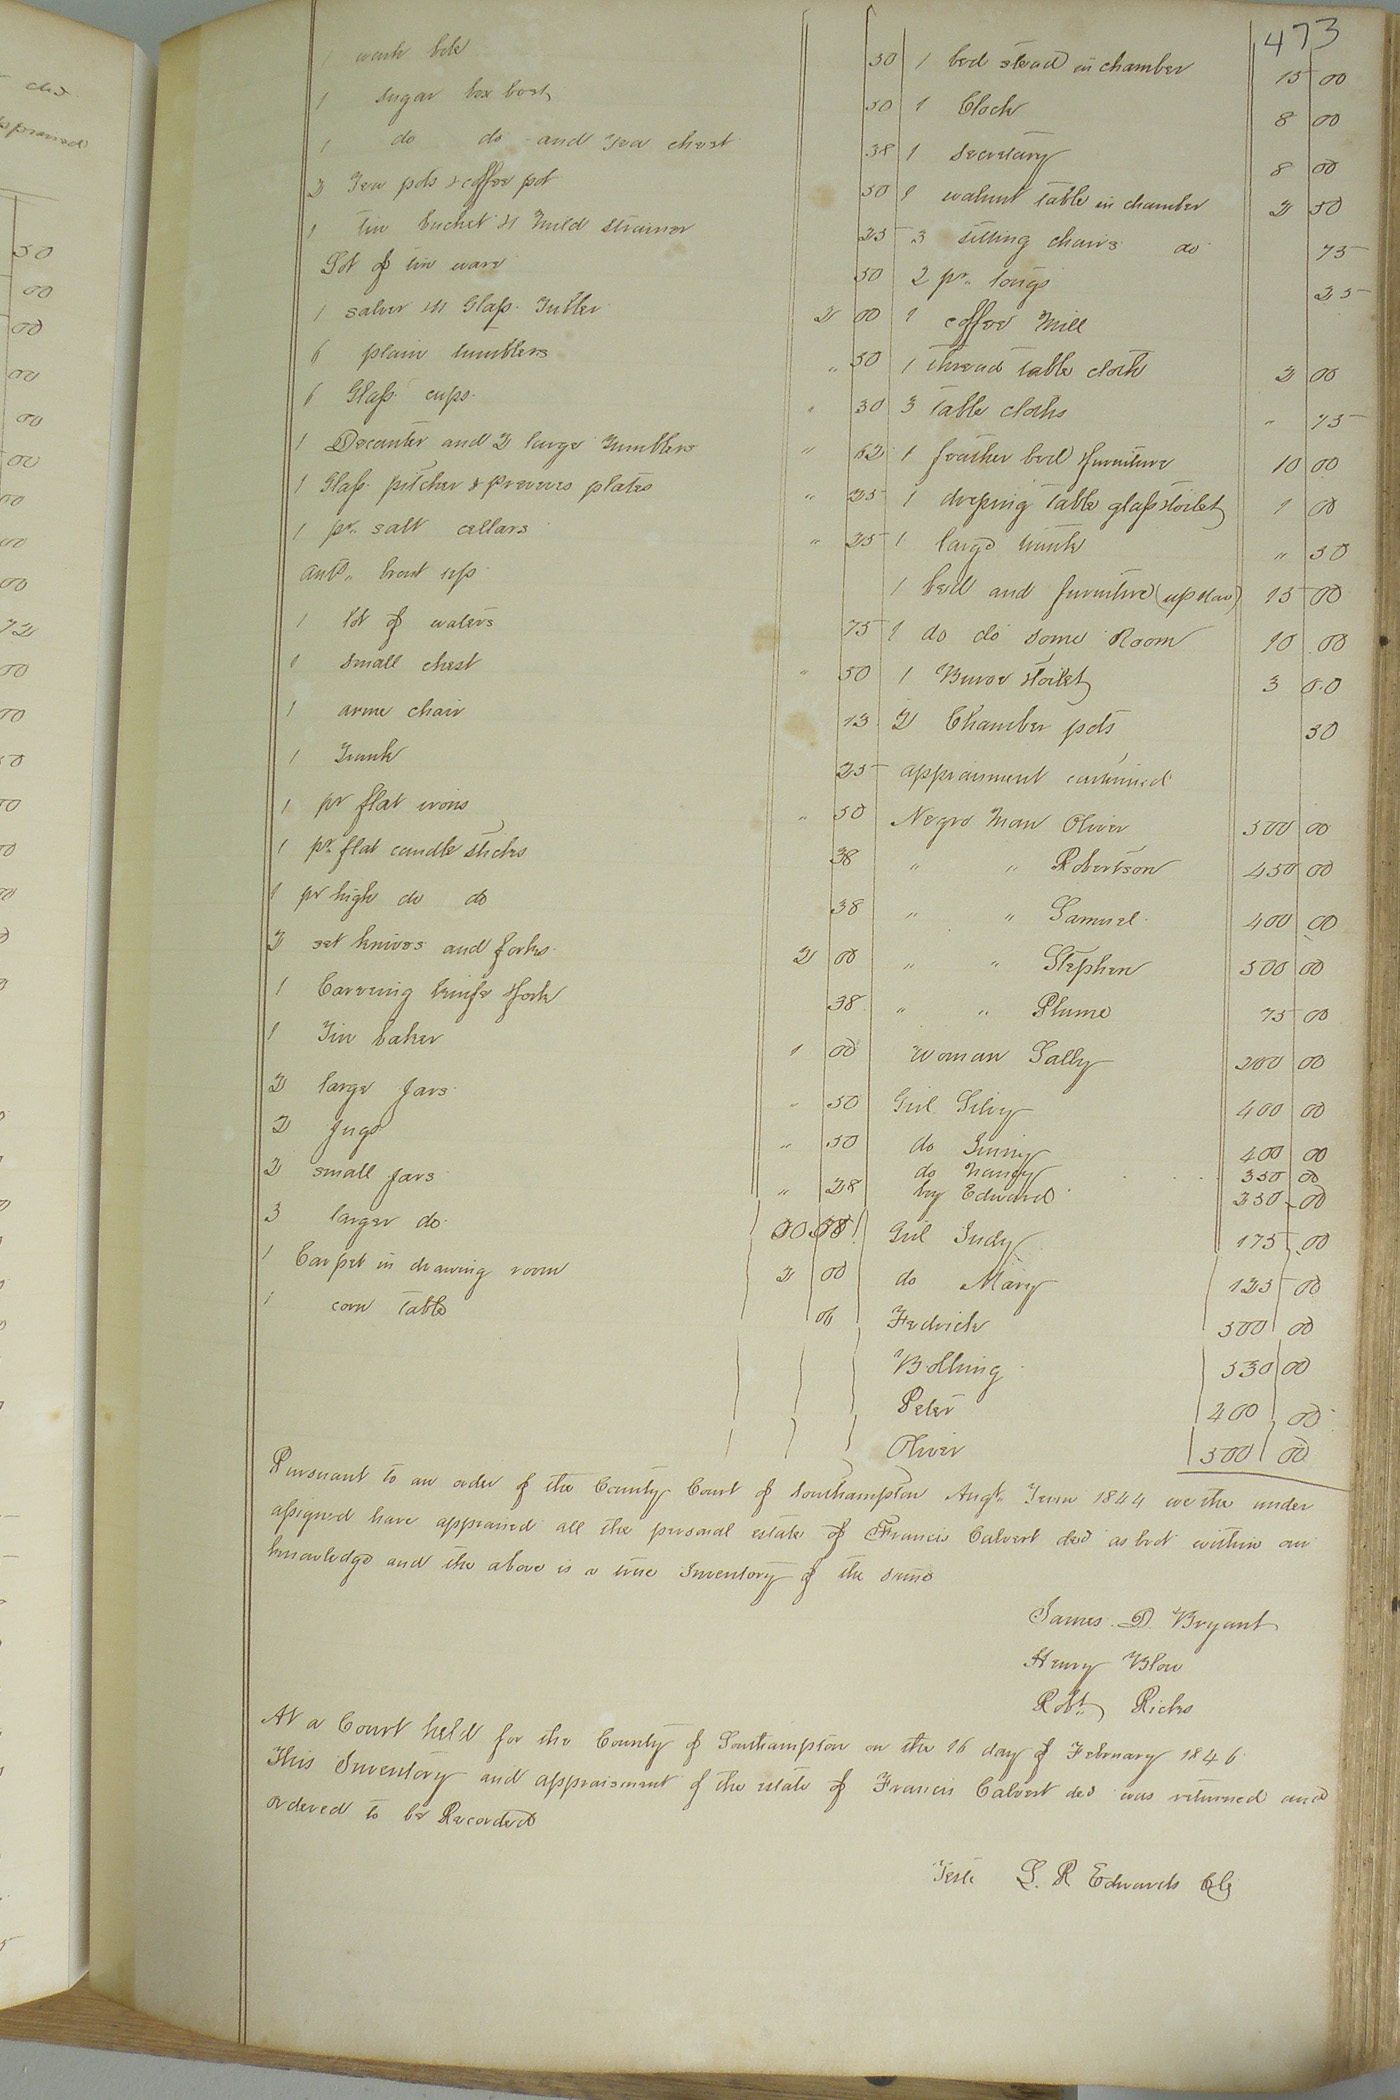 473
1 wash bole 50
1 sugar box best 50
1 do do and Tea chest 38
2 Tea pots & coffee pot 50
1 tin bucket & 1 mild strainer 25
Lot of tin ware 50
1 salver & Glass Tubler 2 00
6 plain tumblers " 50
6 Glass cups " 30
1 Decanter and 2 large Tumblers " 62
1 Glass pitcher & preserves plates " 25
1 pr. salt cellars " 25
Amt. brout up
1 lot of waters 75
1 small chest " 50
1 arme chair 13
1 Trunk 25
1 pr flat irons " 50
1 pr. flat candle sticks 38
1 pr high do do 38
2 set knives and forks 2 00
1 Carveing knife & fork 38
1 Tin baker 1 00
2 large Jars " 50
2 Jugs " 50
2 small Jars " 28
3 larger do
1 Carpet in drawing room 2 00
1 corn table
1 bed stead in chamber 15 00
1 Clock 8 00
1 Secretary 8 00
1 walnut table in chamber 2 50
3 sitting chairs do 75
2 pr. tongs 25
1 coffee Mill
1 thread table cloth 2 00
3 table cloths " 75
1 feather bed & furniture 10 00
1 dressing table glass & toilet 1 00
1 large trunk " 50
1 bed and furniture (up star) 15 00
1 do do some Room 10 00
1 Buroe & toilet 3 00
2 Chamber pots 50
appraisment continued
Negro Man Oliver 500 00
" " Robertson 450 00
" " Samuel 400 00
" " Stephen 500 00
" " Plume 75 00
Woman Sally 200 00
Girl Silvy 400 00
do Jinny 400 00
do Nancy 350 00
boy Edward 250 00
Girl Judy 175 00
do Mary 125 00
Fedrick 500 00
Bolling 530 00
Peter 400 00
Oliver 500 00
Pursuant to an order of the County Court of Southampton Augt. Term 1844 we the under
assigned have appraised all the personal estate of Francis Calvert decd as brot within our
knowledge and the above is a true Inventory of the same
James D. Bryant
Henry Blow
Robt. Ricks
At a Court held for the County of Southampton on the 16 day of February 1846
This Inventory and appraisement of the estate of Francis Calvert decd was returned and
ordered to be Recorded
Teste L. R Edwards Clk